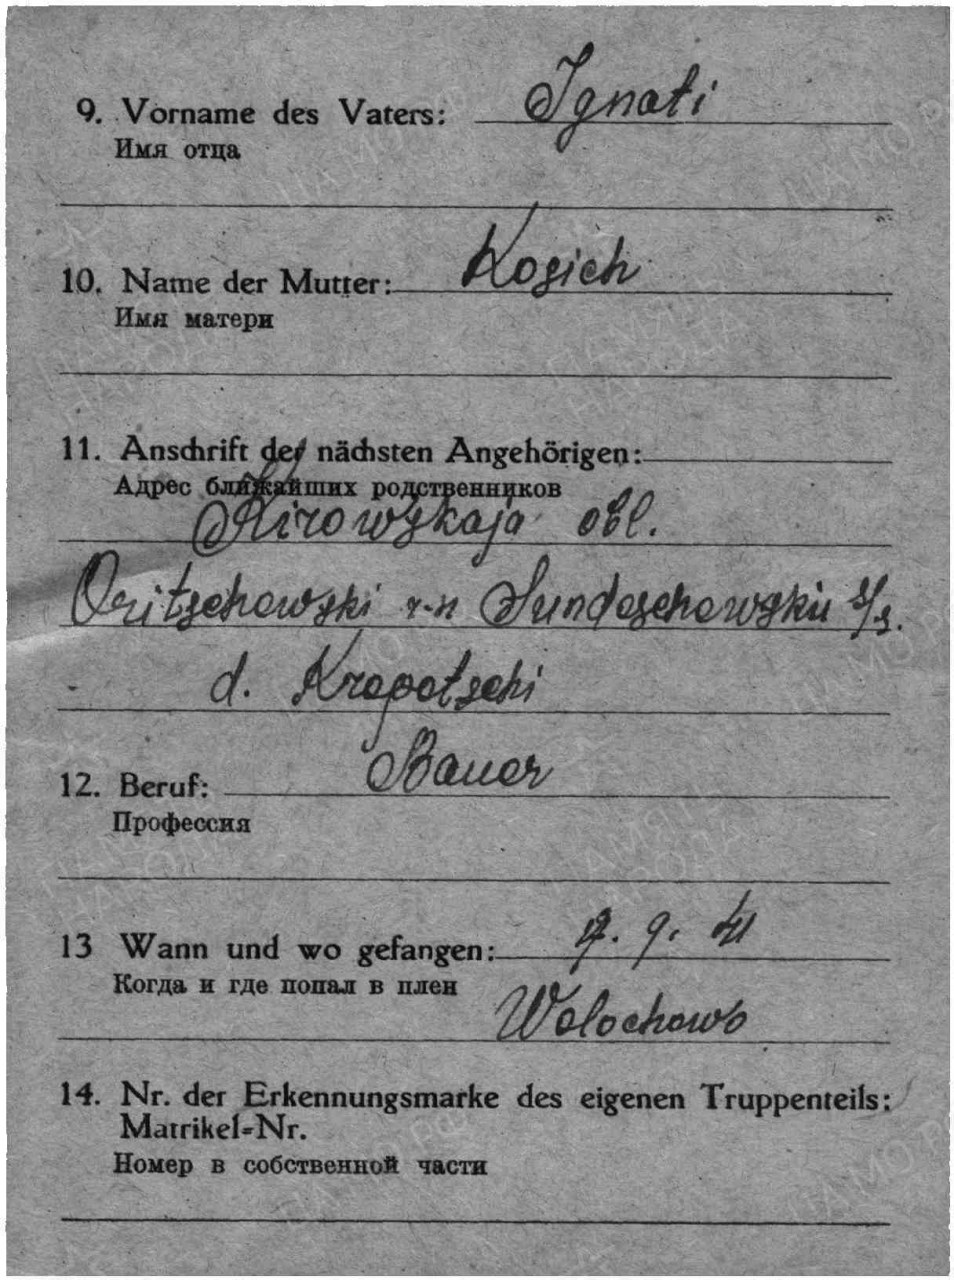 9. Vorname des Vaters: Ignati
Имя отца
10. Name der Mutter: Kosich
Имя матери
11. Anschrift der nächsten Angehörigen:
Адрес ближайших родственников
Kirowskaja obl.
Oritschewski r-n s/s.
d. Kropotschi
12. Beruf: Bauer
Профессия
13 Wann und wo gefangen: 9. 41
Когда и где попал в плен
Wolochowo
14. Nr. der Erkennungsmarke des eigenen Truppenteils:
Matrikel-Nr.
Номер в собственной части